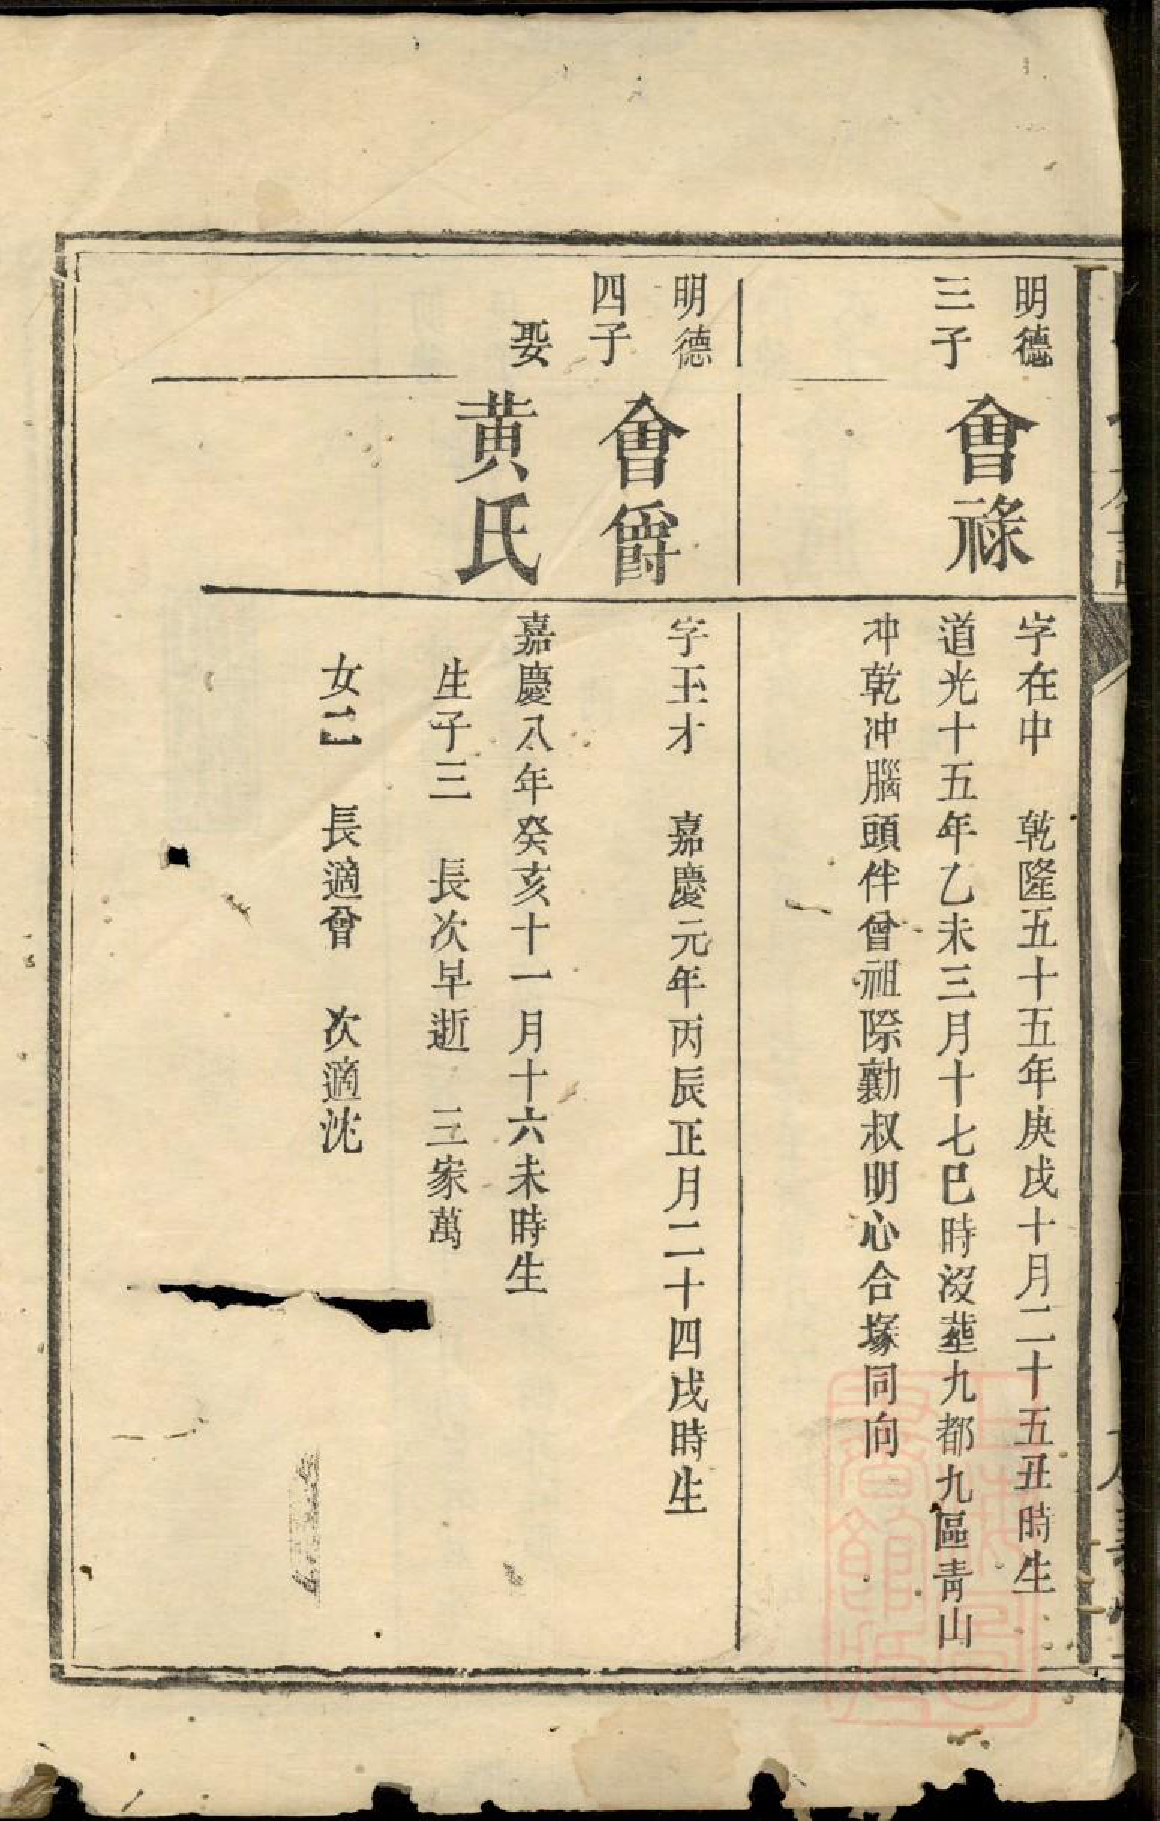 明德
三子
會祿
字在中　乾隆五十五年庚戌十月二十五丑時生
道光十五年乙未三月十七巳時沒塟九都九區靑山
冲乾冲腦頭伴曾祖際勷叔明心合塚同向
明德
四子
會爵
字玉才　嘉慶元年丙辰正月二十四戌時生
娶
黃氏
嘉慶八年癸亥十一月十六未時生
生子三　長次早逝　三家萬
女二　長適曾　次適沈